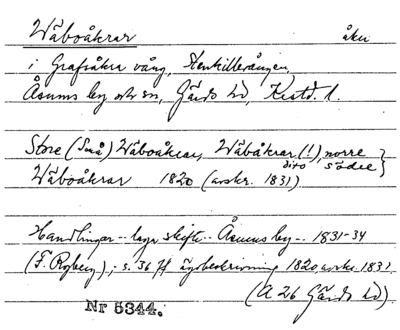 Wäboåkrar åker
i Grafsåkra vång, Stenkillevången,
Åsums by och sn, Gärds hd, Kstd. l.
Store (Små) Wäboåkrar, Wäbåkrar (!), norre
dito, södre}
Wäboåkrar 1820 (avskr. 1831)
Handlingar -- laga skifte -- Åsums by -- 1831-34
(F. Rygberg); s. 36 ff ägobeskrivning 1820, avskr. 1831
(A 26 Gärds hd).
Nr 5344.